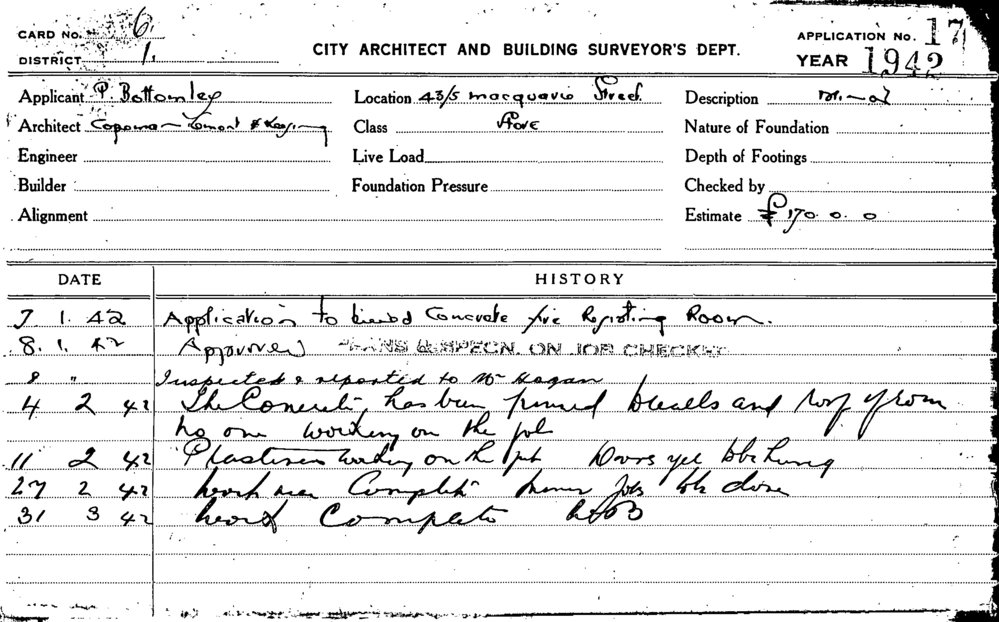 CARD No. 6.
DISTRICT 1.
CITY ARCHITECT AND BUILDING SURVEYOR'S DEPT.
APPLICATION No. 17
YEAR 1942
Applicant P. Bottomley
Location 43/5 Macquarie Street.
Description
Architect
Class Store
Nature of Foundation
Engineer
Live Load
Depth of Footings
Builder
Foundation Pressure
Checked by
Alignment
Estimate £170. 0. 0
DATE
HISTORY
7 1. 42 Application to build Concrete fire Resisting Room.
8. 1. 42 Approved PLANS & SPECN. ON JOB CHECKED
9 " Inspected & reported to Mr Hogan
4 2 42 The Concrete has been poured to walls and roof of room
no one working on the job
11 2 42 Plasterers working on the job Doors yet to be hung
27 2 42 work near Complete minor jobs to be done
31 3 42 work Complete